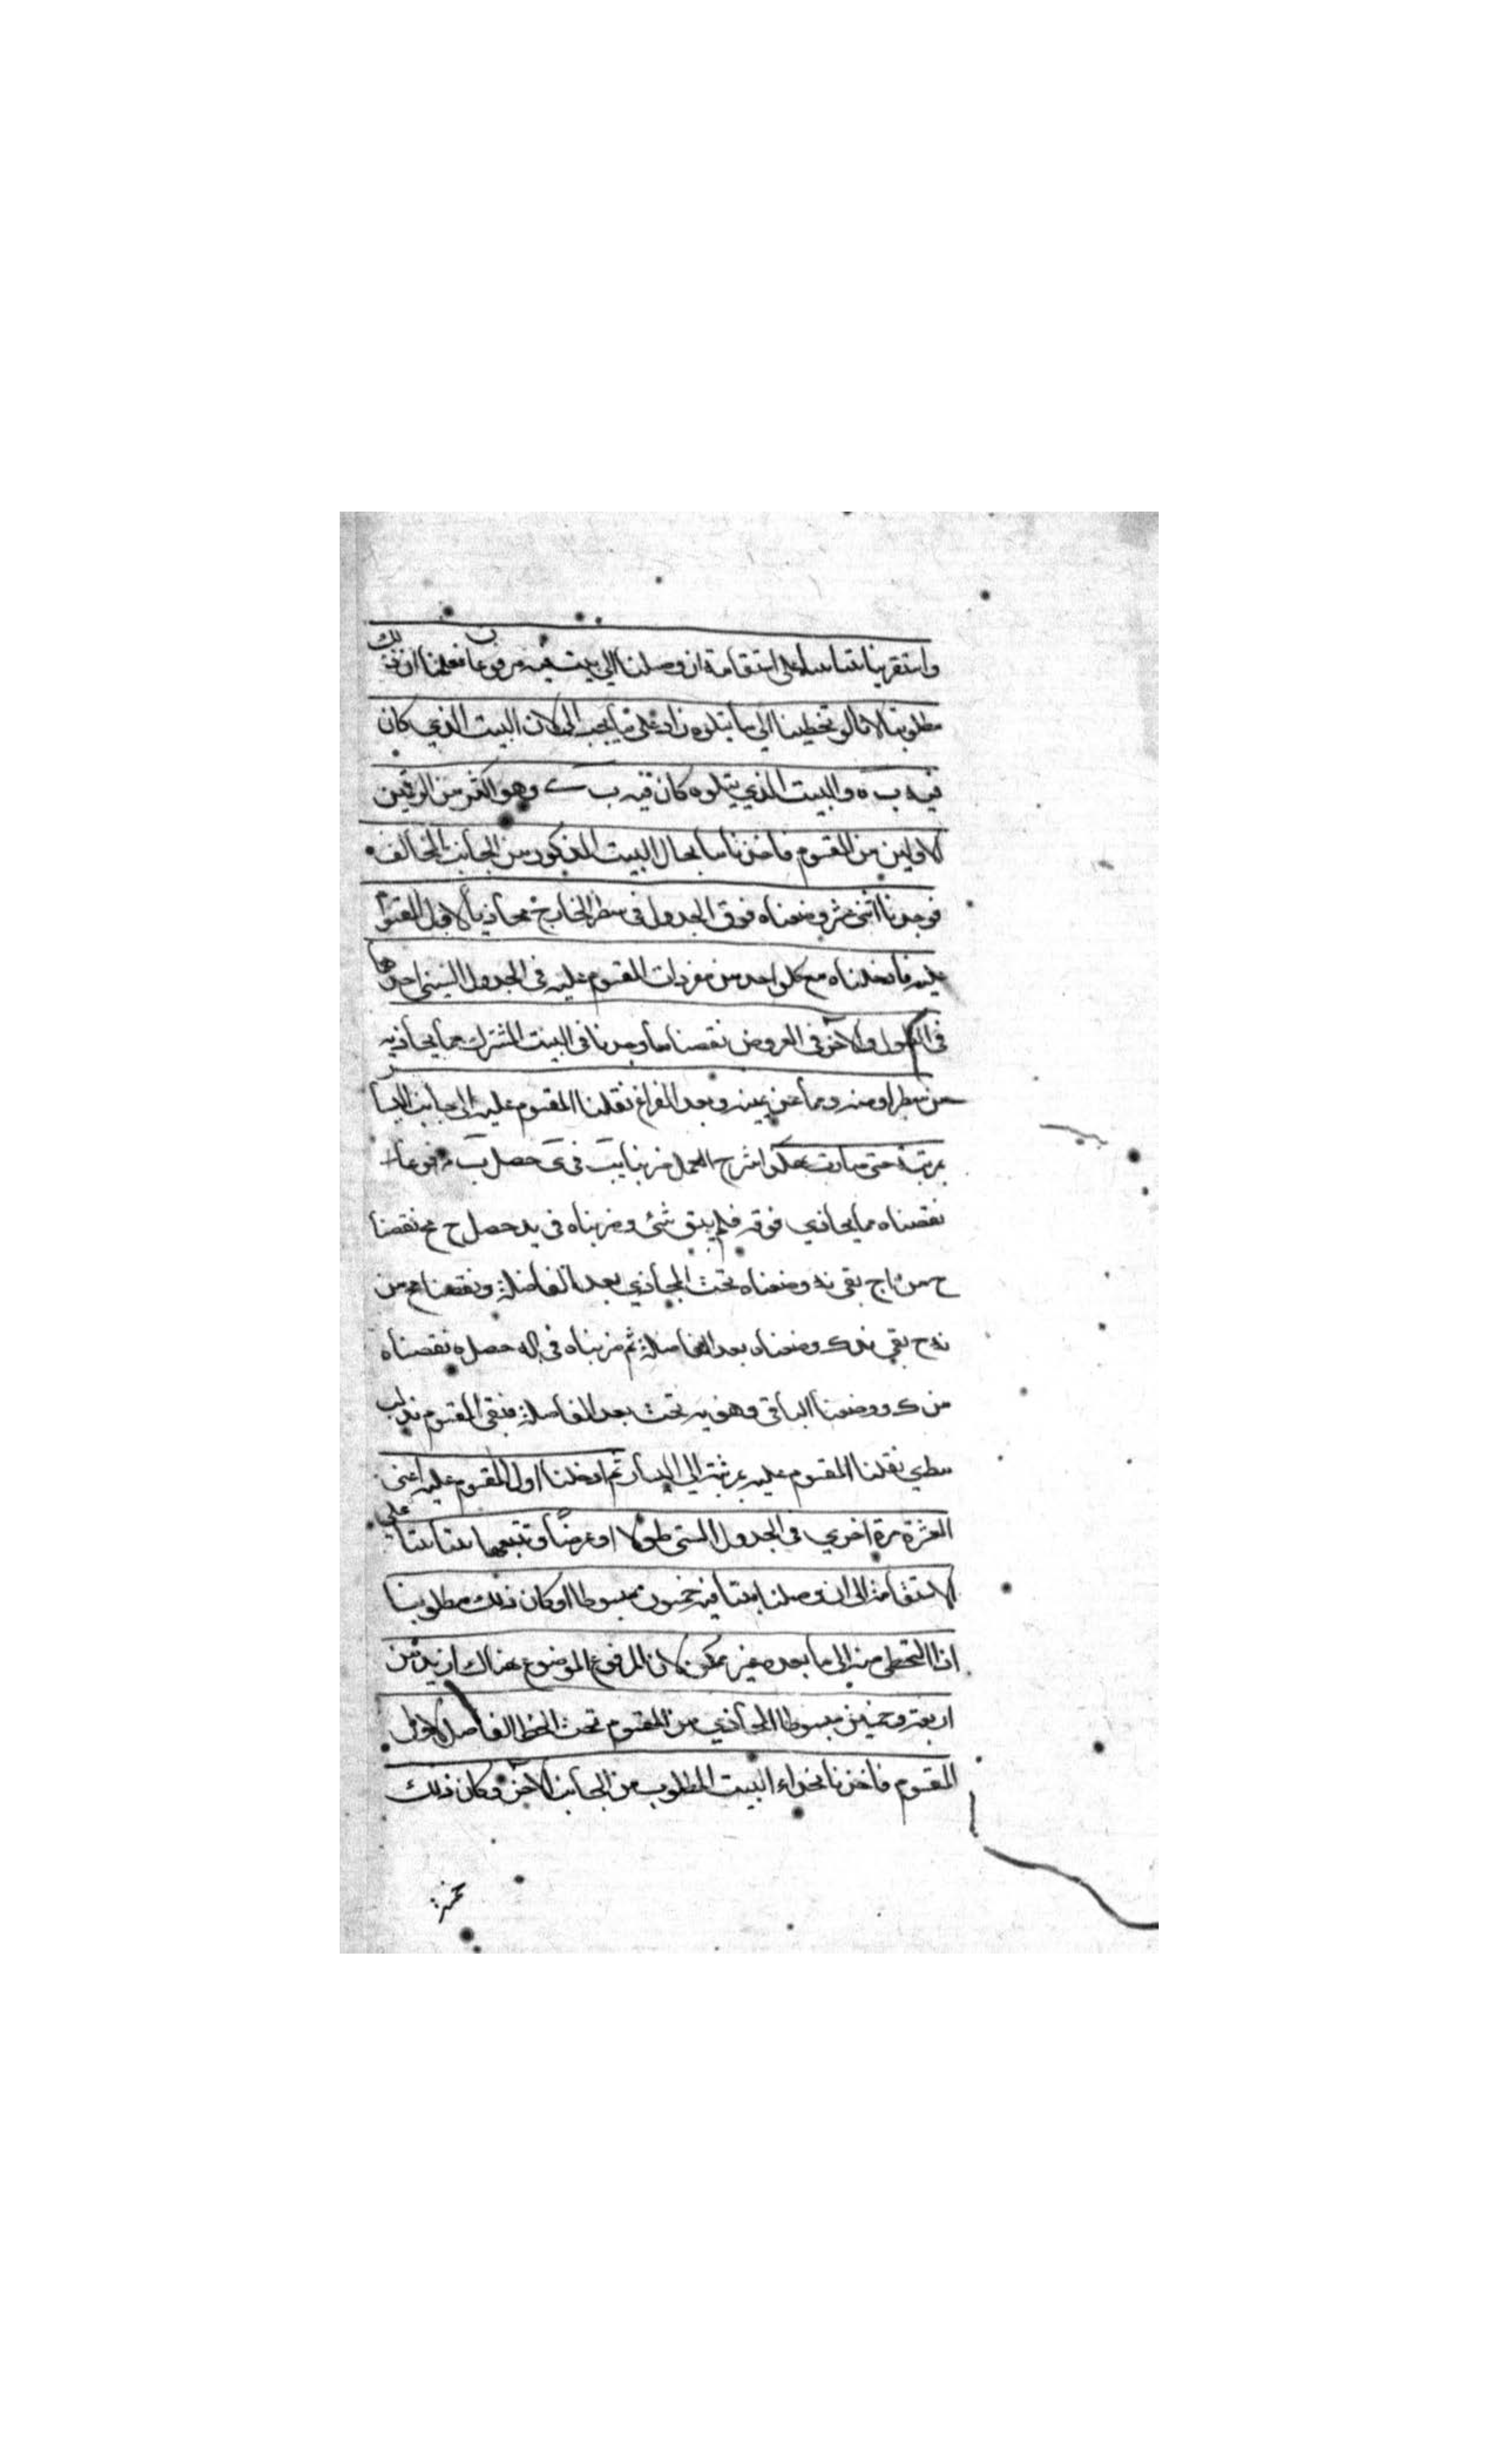 واستقرينا بيتا بيتا على استقامة ان وصلنا الى بيت فيه ب مرفوعا فعلمنا ان ذلك
مطلوبنا لانا لو تخطينا الى ما يتلوه زاد على ما يجب لان البيت الذي كان
فيه ب ه والبيت الذي يتلوه كان فيه ب ى وهو اكثر من الرقمين
الاولين من المقسوم فاخذنا ما بحيال البيت المذكور من الجانب المخالف
فوجدنا اثنى عشر وضعناه فوق الجدول في سطر الخارج محاذيا لاول المقسوم
عليه فادخلناه مع كل واحد من مفردات المقسوم عليه في الجدول الستيني احدها
في الطول والآخر في العرض نقصنا ما وجدنا في البيت المشترك مما يحاذيه
من سطر او منه ومما عن يمينه وبعد الفراغ نقلنا المقسوم عليه الى جانب اليسار
بمرتبة حتى صارت هكذا شرح العمل ضربنا يب في ى حصل ب مرفوعا
نقصناه مما يحاذي فوقه فلم يبق شئ وضربناه في يد حصل ح مح نقصنا
ح من اج بقى نه وضعناه تحت المحاذي بعد الفاصلة ونقصنا مح من
نه ح بقى ند ك وضعناه بعد الفاصلة ثم ضربناه في اله حصل ه نقصناه
من ك ووضعنا الباقى وهو يه تحت بعد الفاصلة فبقى المقسوم ند
سطرى نقلنا المقسوم عليه بمرتبة الى اليسار ثم ادخلنا اول المقسوم عليه اعنى
العشرة مرة اخرى في الجدول الستيني طولا او عرضا وتتبعها بيتا بيتا على
الاستقامة الى ان وصلنا بيتا فيه خمسون مبسوطا او كان ذلك مطلوبنا
اذ التخطى منه الى ما بعده غير ممكن لان المرفوع الموضوع هناك ازيد من
اربعة وخمسين مبسوطا المحاذي من المقسوم تحت الخط الفاصل لاول
المقسوم فاخذنا بحذاء البيت المطلوب من الجانب الآخر وكان ذلك
خمسة